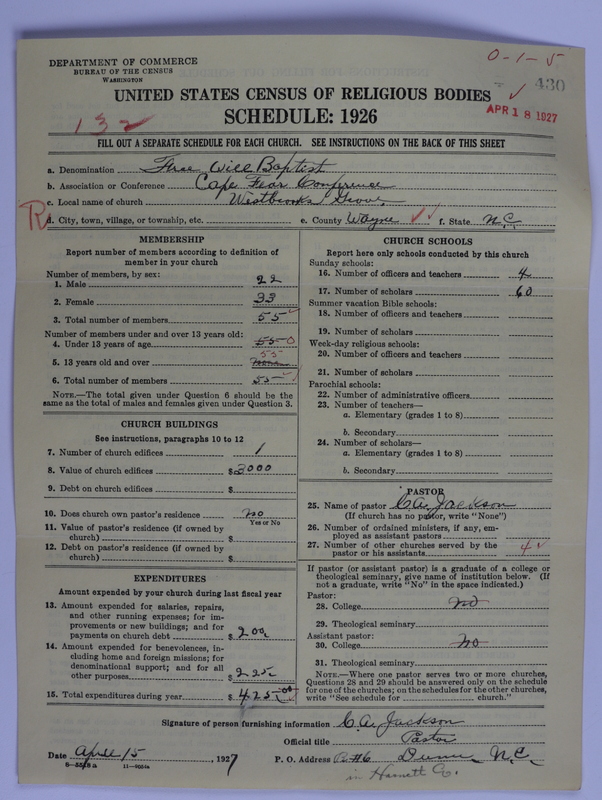 DEPARTMENT OF COMMERCE
BUREAU OF THE CENSUS
WASHINGTON
0-1-5
430
APR 18 1927
UNITED STATES CENSUS OF RELIGIOUS BODIES
SCHEDULE: 1926
132
FILL OUT A SEPARATE SCHEDULE FOR EACH CHURCH. SEE INSTRUCTIONS ON THE BACK OF THIS SHEET
a. Denomination Free Will Baptist
b. Association or Conference Cape Fear Conference
c. Local name of church Westbrooks Grove
R
d. City, town, village, or township, etc. e. County Wayne f. State N.C.
MEMBERSHIP
Report number of members according to definition of
member in your church
Number of members, by sex:
1. Male 22
2. Female 33
3. Total number of members 55
Number of members under and over 13 years old:
4. Under 13 years of age 55 0
5. 13 years old and over 55
6. Total number of members 55
NOTE.—The total given under Question 6 should be the
same as the total of males and females given under Question 3.
CHURCH BUILDINGS
See instructions, paragraphs 10 to 12
7. Number of church edifices 1
8. Value of church edifices $2000
9. Debt on church edifices $
10. Does church own pastor's residence no
Yes or No
11. Value of pastor's residence (if owned by
church) $
12. Debt on pastor's residence (if owned by
church) $
EXPENDITURES
Amount expended by your church during last fiscal year
13. Amount expended for salaries, repairs,
and other running expenses; for im-
provements or new buildings; and for
payments on church debt $ 200
14. Amount expended for benevolences, in-
cluding home and foreign missions; for
denominational support; and for all
other purposes $ 225
15. Total expenditures during year $ 425.00
CHURCH SCHOOLS
Report here only schools conducted by this church
Sunday schools:
16. Number of officers and teachers 4
17. Number of scholars 60
Summer vacation Bible schools:
18. Number of officers and teachers
19. Number of scholars
Week-day religious schools:
20. Number of officers and teachers
21. Number of scholars
Parochial schools:
22. Number of administrative officers
23. Number of teachers—
a. Elementary (grades 1 to 8)
b. Secondary
24. Number of scholars—
a. Elementary (grades 1 to 8)
b. Secondary
PASTOR
25. Name of pastor C.A. Jackson
(If church has no pastor, write "None")
26. Number of ordained ministers, if any, em-
ployed as assistant pastors
27. Number of other churches served by the
pastor or his assistants 4
If pastor (or assistant pastor) is a graduate of a college or
theological seminary, give name of institution below. (If
not a graduate, write "No" in the space indicated.)
Pastor:
28. College no
29. Theological seminary
Assistant pastor:
30. College no
31. Theological seminary
NOTE.—Where one pastor serves two or more churches,
Questions 28 and 29 should be answered only on the schedule
for one of the churches; on the schedules for the other churches,
write "See schedule for church."
Signature of person furnishing information C.A. Jackson
Official title Pastor
Date April 15, 1927 P. O. Address R#6 Dunn, N.C.
in Harnett Co.